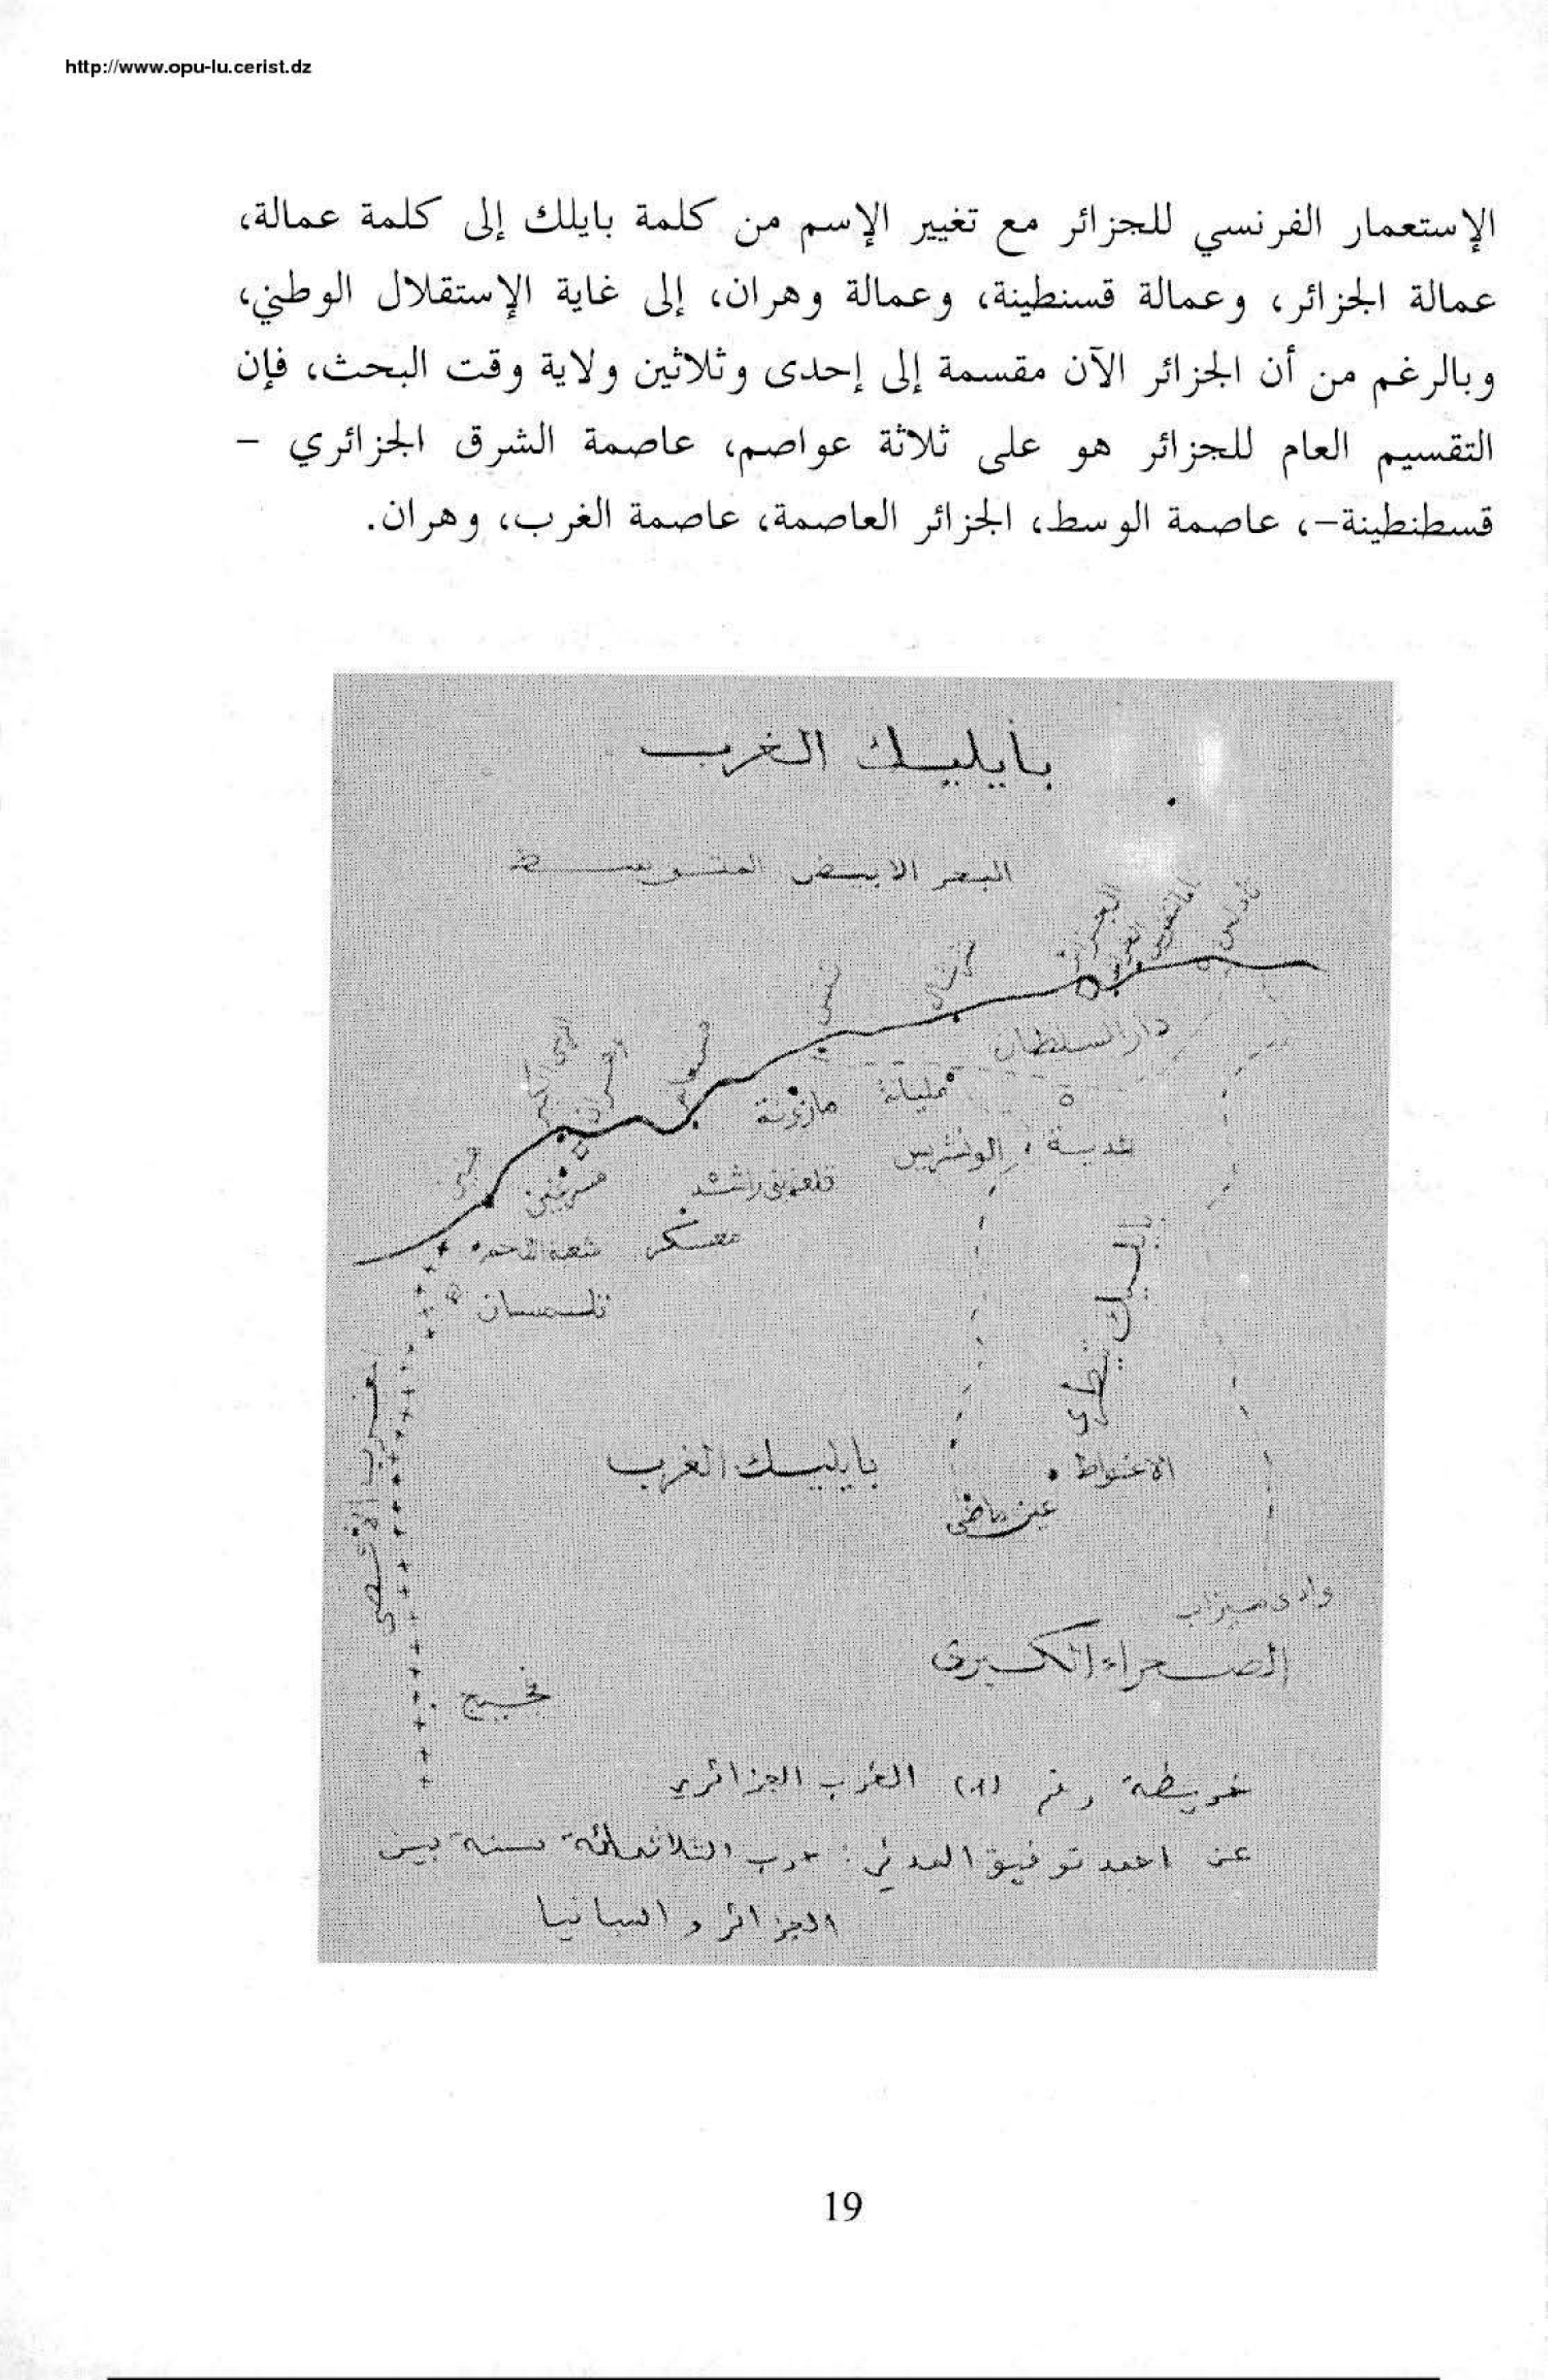 http://www.opu-lu.cerist.dz
الإستعمار الفرنسي للجزائر مع تغيير الإسم من كلمة بايلك إلى كلمة عمالة،
عمالة الجزائر، وعمالة قسنطينة، وعمالة وهران، إلى غاية الإستقلال الوطني،
وبالرغم من أن الجزائر الآن مقسمة إلى إحدى وثلاثين ولاية وقت البحث، فإن
التقسيم العام للجزائر هو على ثلاثة عواصم، عاصمة الشرق الجزائري –
قسطنطينة–، عاصمة الوسط، الجزائر العاصمة، عاصمة الغرب، وهران.
بايليك الغرب
البحر الابيض المتوسط
تنس
دار السلطان
مليانة
مازونة
الونشريس
معسكر
تلمسان
بايليك الغرب
الاغواط
عين ماضي
وادى ميزاب
الصحراء الكبرى
خريطة رقم الغرب الجزائري
عن احمد توفيق المدني: حرب الثلاثمائة سنة بين
الجزائر و اسبانيا
19